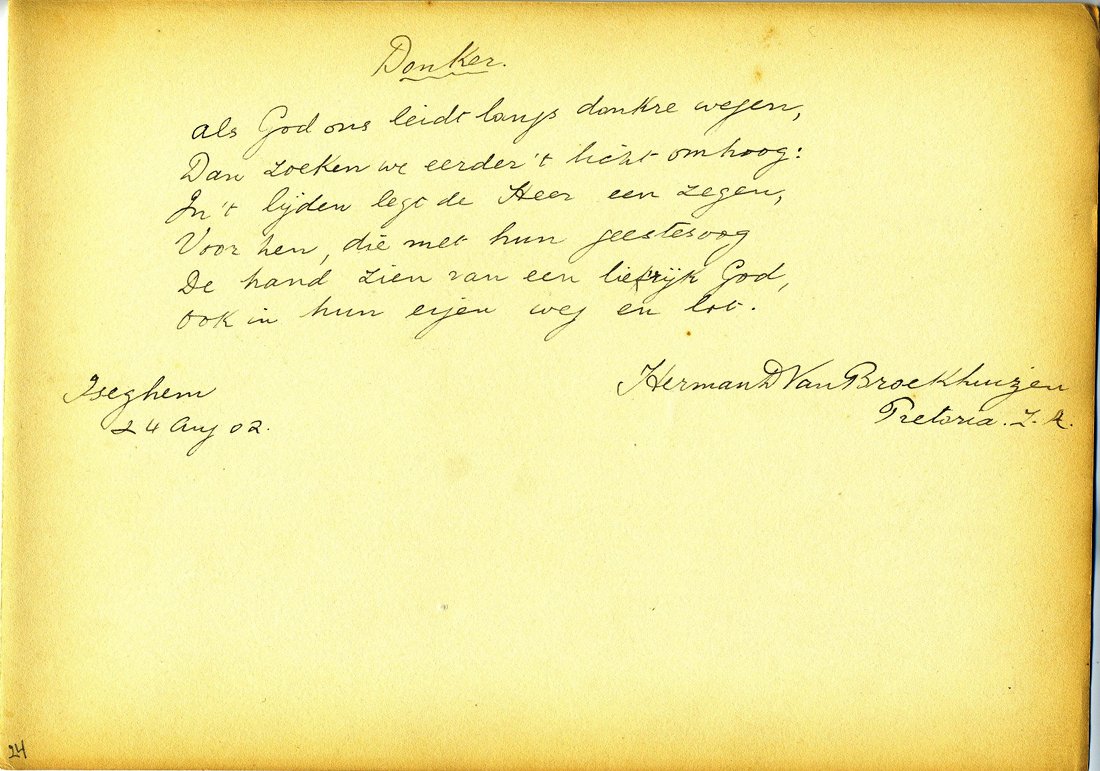 Donker.
als God ons leidt langs donkre wegen,
Dan zoeken we eerder 't licht omhoog:
In 't lijden legt de Heer een zegen,
Voor hen, die met hun geestesoog
De hand zien van een liefrijk God,
ook in hun eigen weg en lot.
Iseghem
24 Aug 02.
Herman D Van Broekhuizen
Pretoria. Z. A.
24